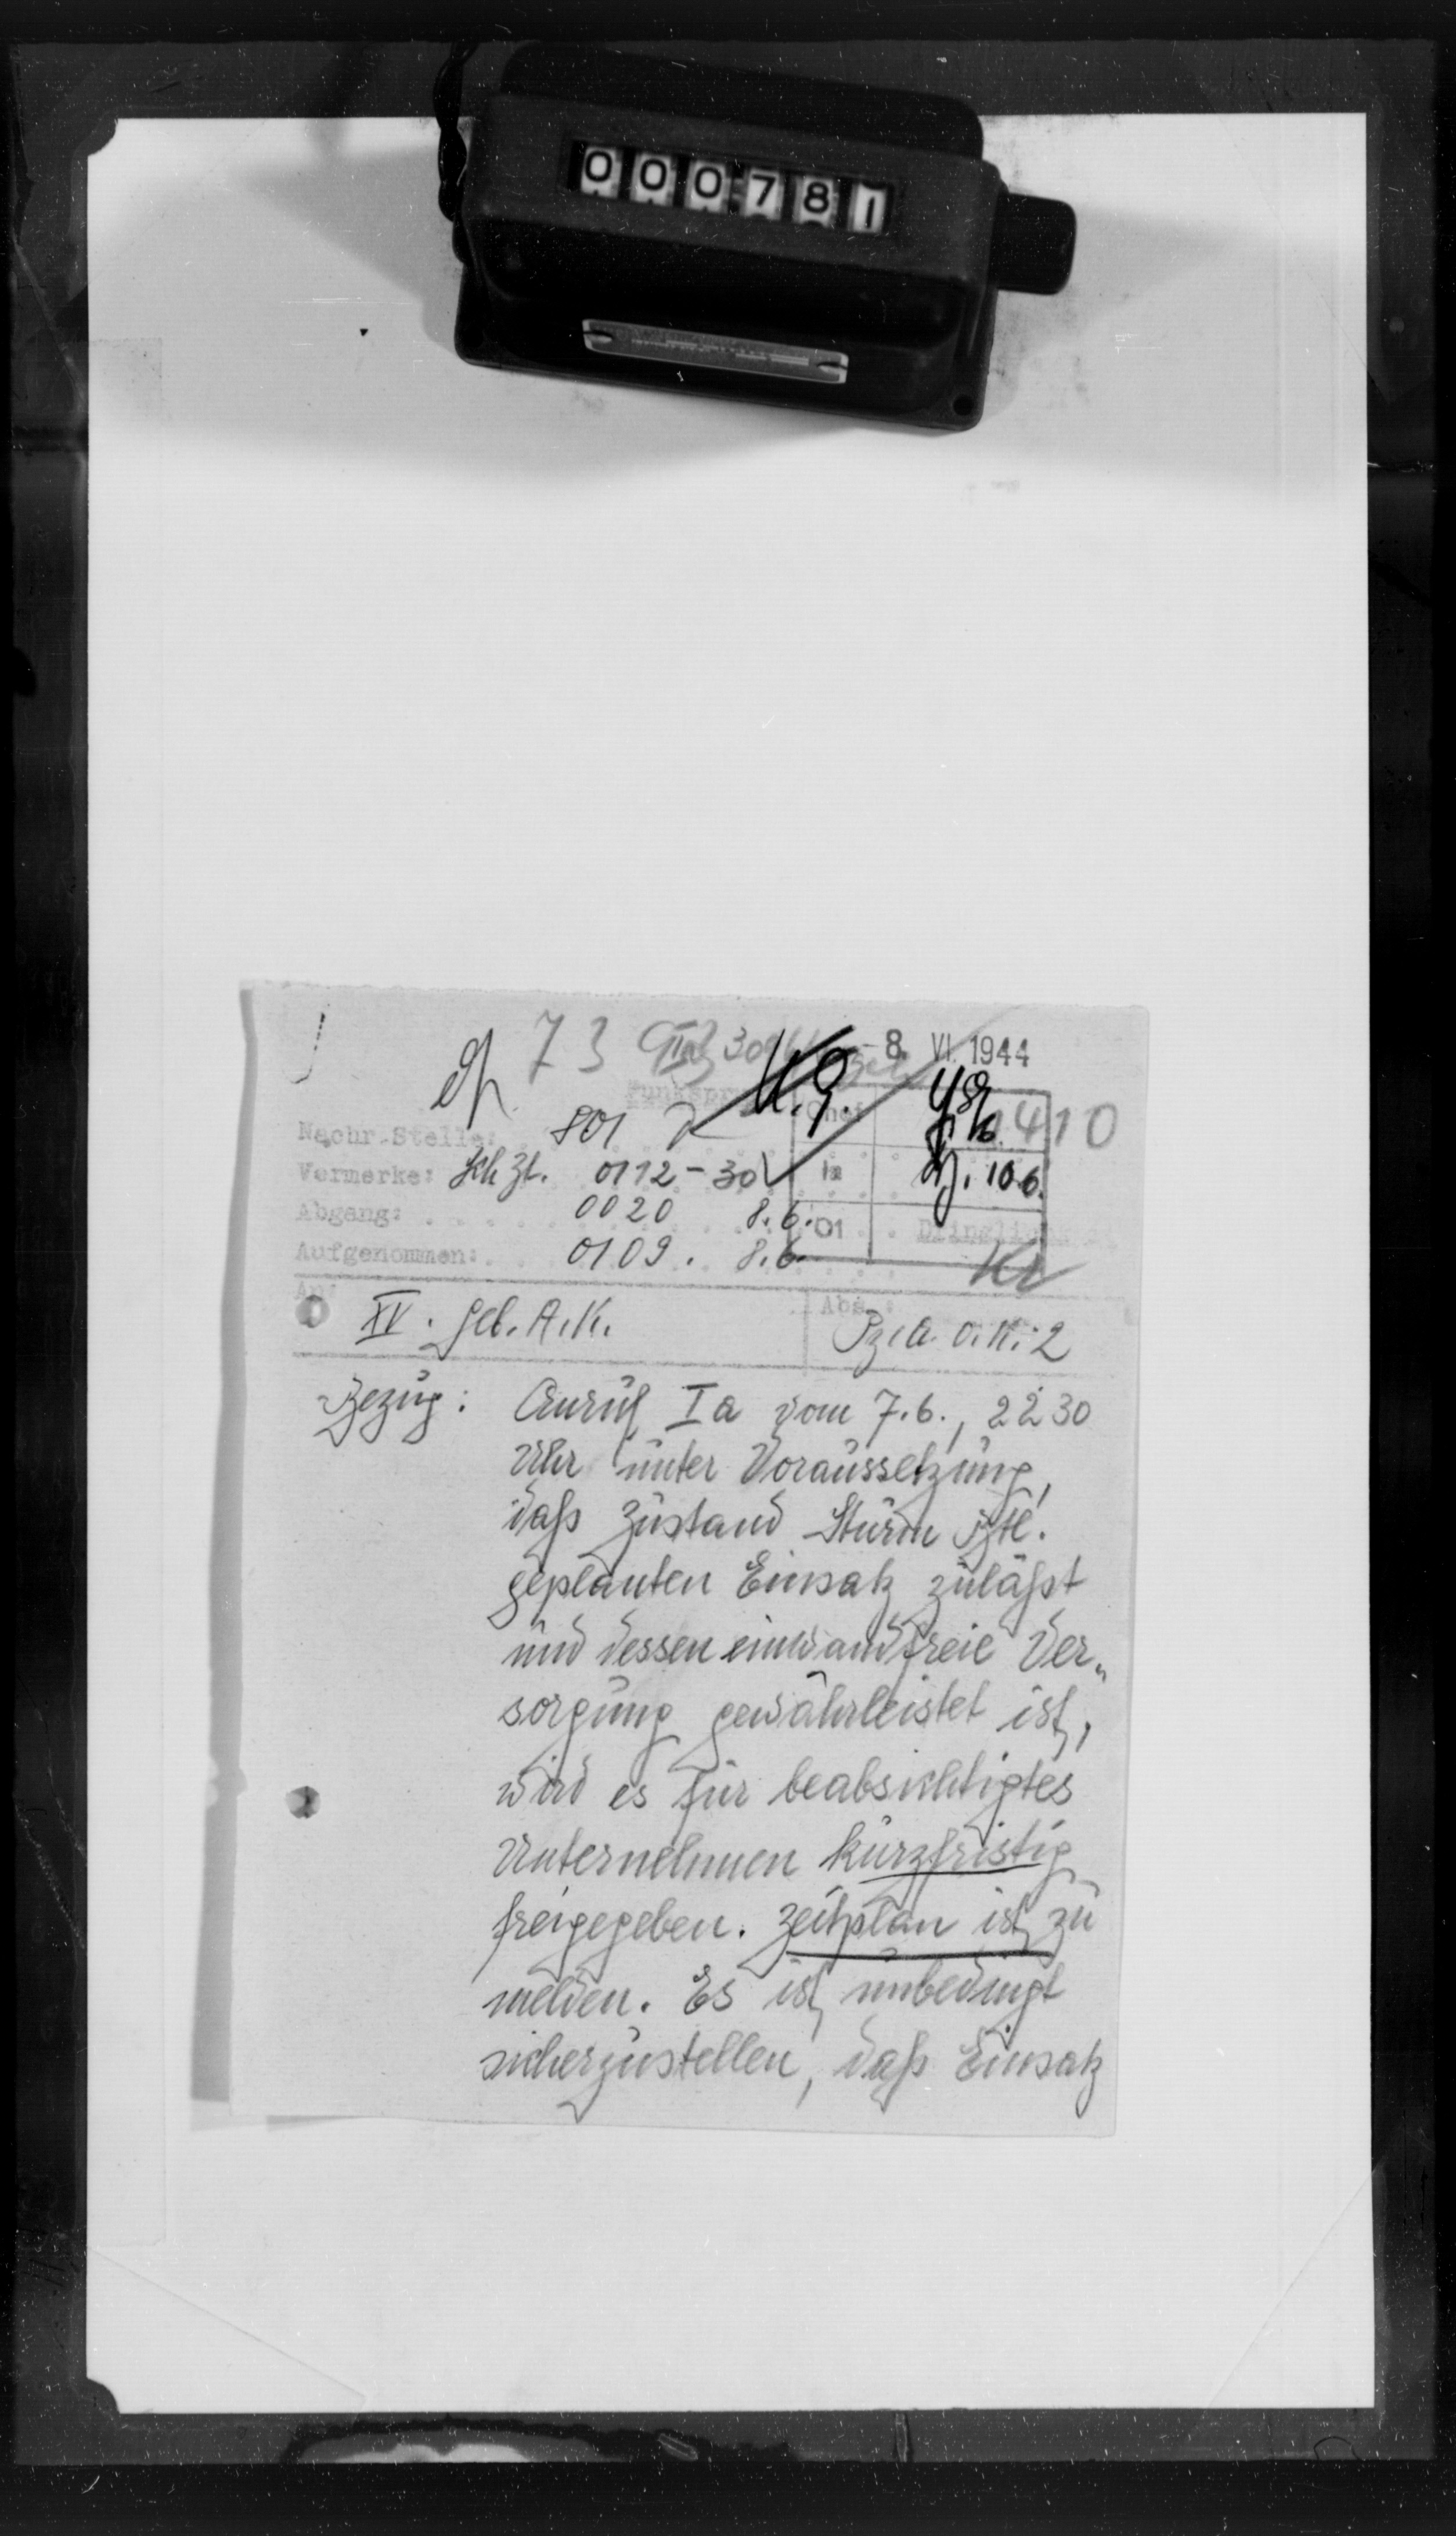 000781
73
- 8. VI. 1944
Funkspr
K.G.
Chef
1410
Nachr.-Stelle: 801
Vermerke: 0112-30
Ia
10.6.
Abgang: 0020 8.6.
O1
Dringlich
Aufgenommen: 0109. 8.6.
Kr
An:
Abs.:
XV. Geb. A.K.
Pz. A. O. K. 2
Bezug: Anruf Ia vom 7.6., 2230
Uhr unter Voraussetzung,
daß Zustand Sturm Btl.
geplanten Einsatz zuläßt
und dessen einwandfreie Ver-
sorgung gewährleistet ist,
wird es für beabsichtigtes
Unternehmen kurzfristig
freigegeben. Zeitplan ist zu
melden. Es ist unbedingt
sicherzustellen, daß Einsatz